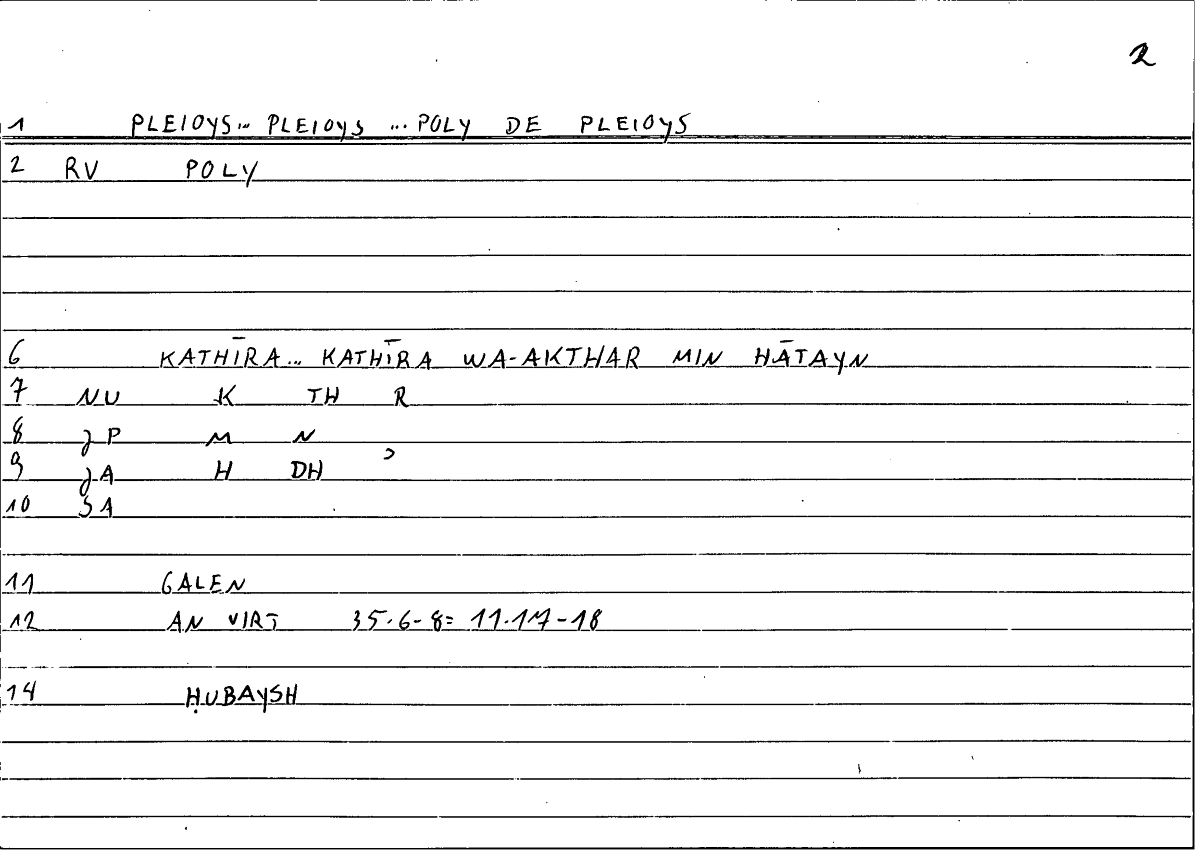 2
1 PLEIOYS... PLEIOYS ... POLY DE PLEIOYS
2 RV POLY
6 KATHĪRA... KATHĪRA WA-AKTHAR MIN HĀTAYN
7 NU K TH R
8 JP M N
9 JA H DH ʾ
10 SA
11 GALEN
12 AN VIRT 35.6-8= 11.17-18
14 ḤUBAYSH